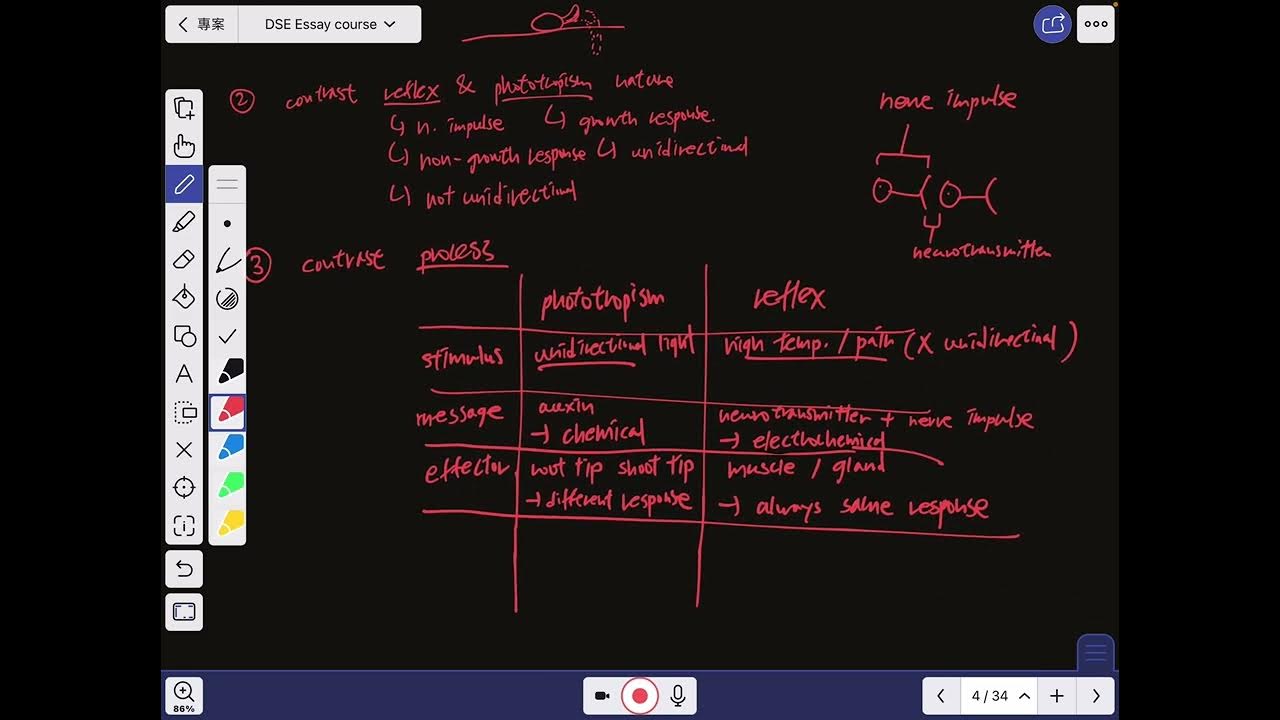 專案
DSE Essay course
② contrast reflex & phototropism nature
↳ n. impulse ↳ growth response.
↳ non-growth response ↳ unidirectinal
↳ not unidirectinal
nerve impulse
neurotransmitter
③ contrast process
phototropism reflex
stimulus unidirectinal light high temp. / pain (X unidirectinal)
message auxin neurotransmitter + nerve impulse
→ chemical → electrochemical
effector root tip shoot tip muscle / gland
→ different response → always same response
A
86%
4 / 34